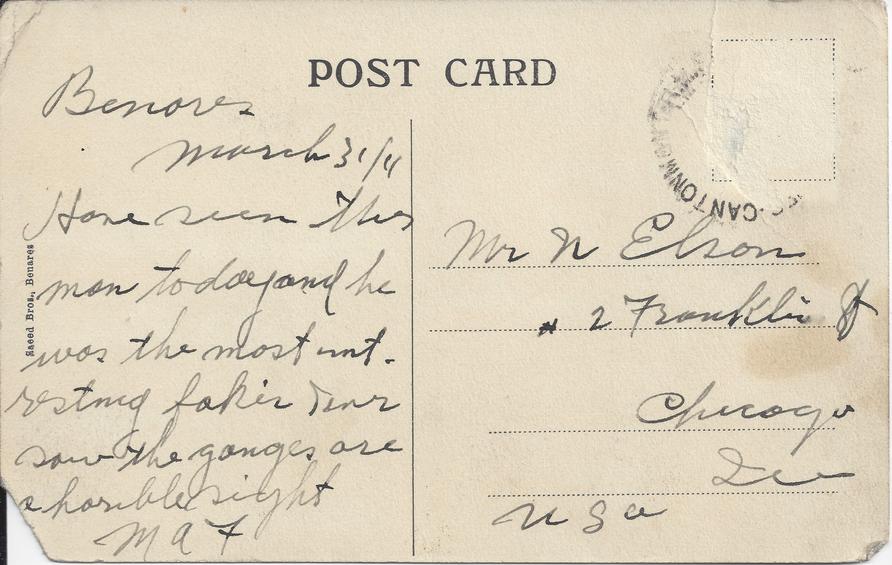 POST CARD
Benares
March 31/11
Have seen this
man today and he
was the most int-
resting fakir I ever
saw the ganges are
a horible sight
M A F
Saeed Bros., Benares
CANTONMENT
Mr N Elson
# 2 Franklin St
Chicago
Ill
U S a